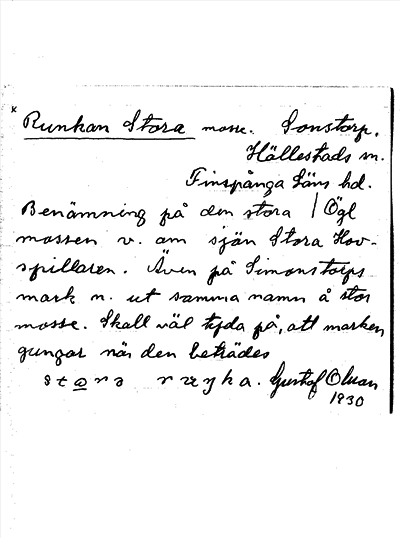 x Runkan Stora mosse. Sonstorp.
Hällestads sn.
Finspånga läns hd.
Benämning på den stora / Ögl
mossen v. om sjön Stora Hov-
spillaren. Även på Simonstorps
mark n. ut samma namn å stor
mosse. Skall väl tyda på, att marken
gungar när den beträdes
Gustaf Olsson
1930